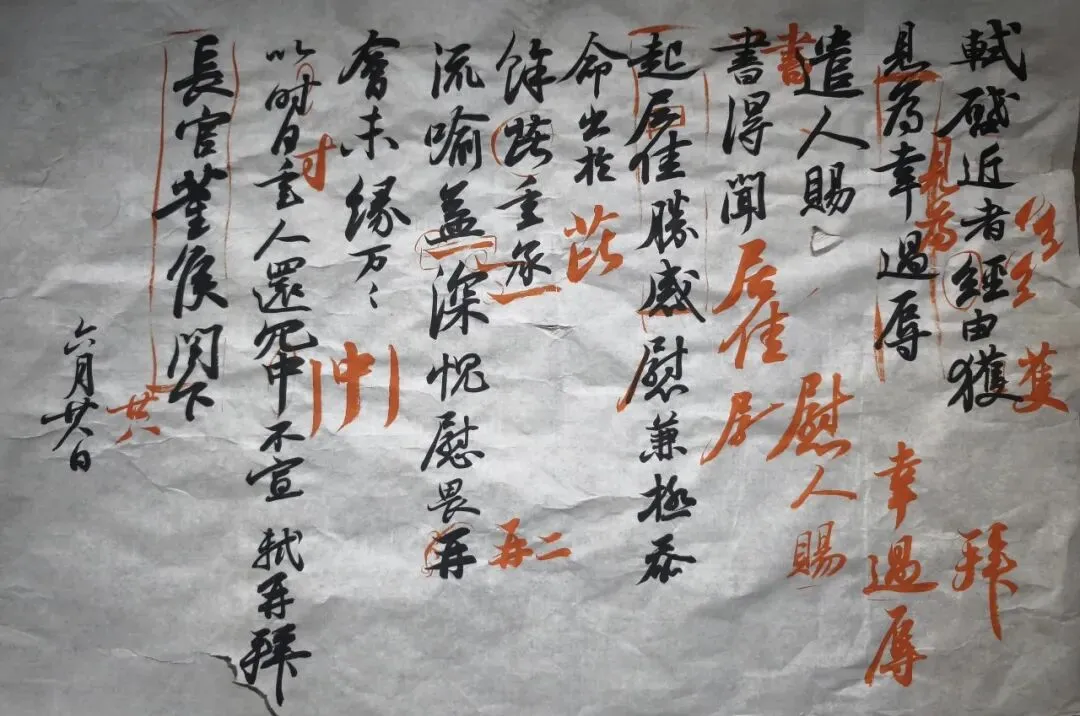 軾啓近者經由獲
見為幸過辱
遣人賜
書得聞
起居佳勝感慰兼極忝
命出於
餘芘重承
流喻益深愧慰畏再
會未緣万〻
以時自重人還冗中不宣 軾再拜
長官董侯閤下
六月廿八日
獲
拜
見為
幸過辱
書
慰人賜
居佳
芘
再二
寸
中
廿八